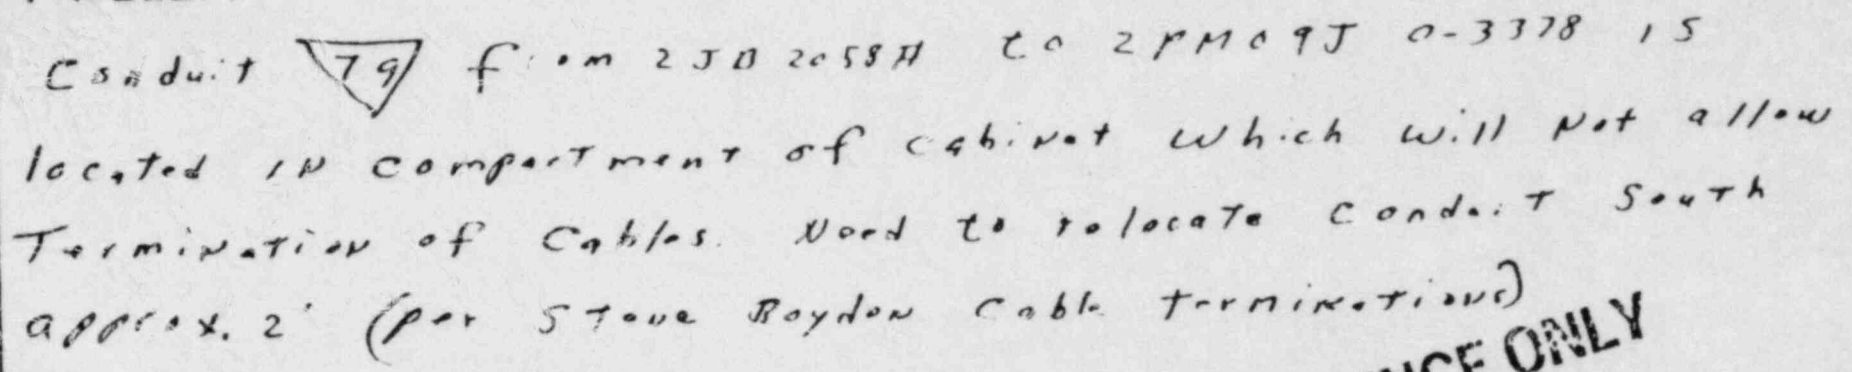 Conduit 79 from 2JB2058A to 2PM09J 0-3378 is
located in compartment of cabinet which will Not allow
Termination of Cables. Need to relocate Conduit South
approx. 2' (per Steve Boydon Cable terminations)
ONLY